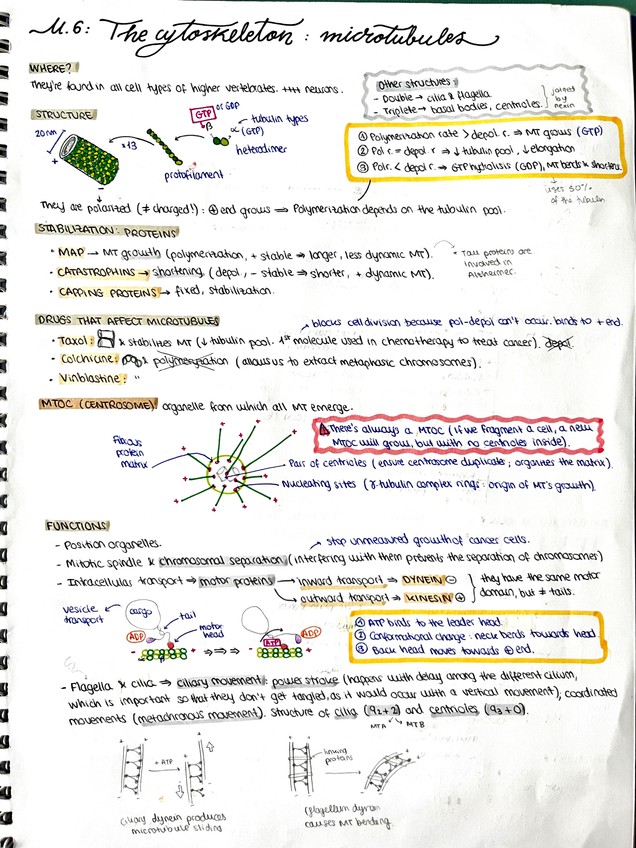 U.6: The cytoskeleton: microtubules
WHERE?
They're found in all cell types of higher vertebrates. ++++ neurons.
Other structures
- Double → cilia & flagella
- Triplete → basal bodies, centroles.
joined by nexin
STRUCTURE
20nm
+
-
x13
protofilament
GTP or GDP
β
α (GTP)
tubulin types
heterodimer
① Polymerization rate > depol r. ⇒ MT grows (GTP)
② Pol r. = depol r. ⇒ ↓ tubulin pool, ↓ elongation
③ Pol r. < depol r. → GTP hydrolisis (GDP), MT bends & shortens.
uses 50% of the tubulin
They are polarized (≠ charged!): ⊕ end grows ⇒ Polymerization depends on the tubulin pool.
STABILIZATION: PROTEINS
· MAP → MT growth (polymerization, + stable ⇒ longer, less dynamic MT).
· CATASTROPHINS → shortening (depol, - stable ⇒ shorter, + dynamic MT).
· CAPPING PROTEINS → fixed, stabilization.
* Tau proteins are
involved in
Alzheimer.
DRUGS THAT AFFECT MICROTUBULES
blocks cell division because pol-depol can't occur. binds to + end.
· Taxol: & stabilizes MT (↓ tubulin pool. 1st molecule used in chemotherapy to treat cancer). depol.
· Colchicine: & polymerization (allows us to extract metaphasic chromosomes).
· Vinblastine: "
MTOC (CENTROSOME): organelle from which all MT emerge.
There's always a MTOC (if we fragment a cell, a new
MTOC will grow, but with no centrioles inside).
Fibrous
protein
matrix
Pair of centrioles (ensure centrosome duplicate; organizes the matrix).
Nucleating sites (γ-tubulin complex rings: origin of MT's growth).
FUNCTIONS
stop unmeasured growth of cancer cells.
- Position organelles.
- Mitotic spindle & chromosomal separation (interfering with them prevents the separation of chromosomes)
- Intracellular transport ⇒ motor proteins
inward transport ⇒ DYNEIN ⊖
outward transport ⇒ KINESIN ⊕
they have the same motor
domain, but ≠ tails.
vesicle
transport
cargo
tail
motor
head
ADP
ATP
ADP
① ATP binds to the leader head.
② Conformational charge: neck bends towards head.
③ Back head moves towards ⊕ end.
- Flagella & cilia ⇒ ciliary movement: power stroke (happens with delay among the different cilium,
which is important so that they don't get tangled, as it would occur with a vertical movement); coordinated
movements (metachronus movement). Structure of cilia (9₂+2) and centrioles (93+0).
MTA MTB
+ ATP
ciliary dynein produces
microtubule sliding
linking
proteins
flagellum dynein
causes MT bending.